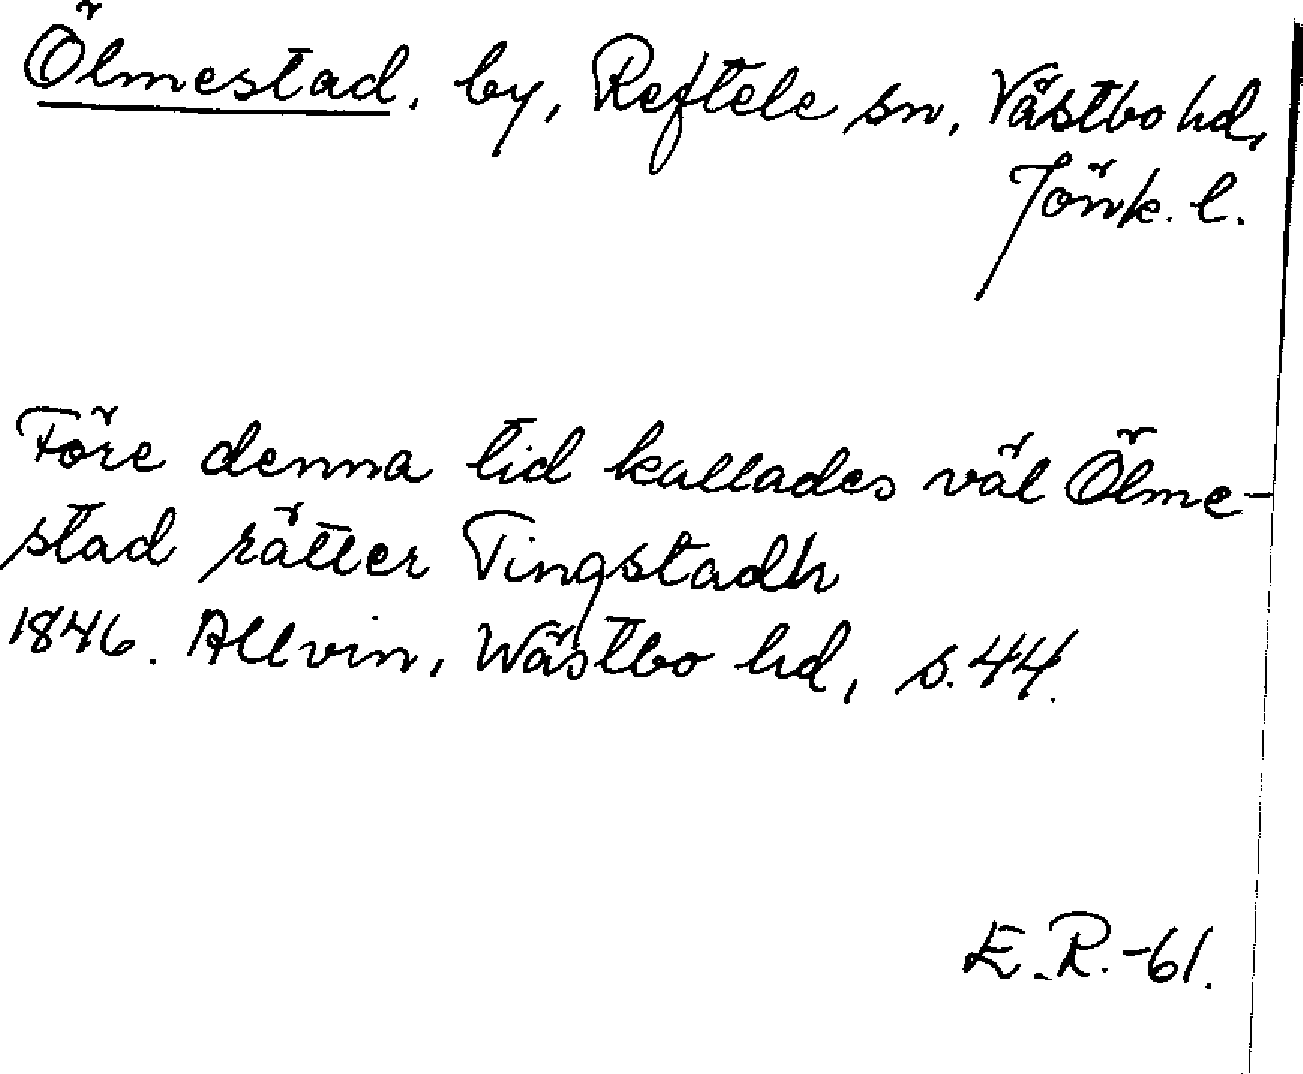 Ölmestad, by, Reftele sn, Västbo hd,
Jönk. l.
Före denna tid kallades väl Ölme-
stad rätter Tingstadh
1846. Allvin, Wästbo hd, s. 44.
E.R.-61.